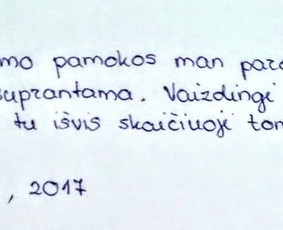 mo pamokos man paro
suprantama. Vaizdingi
tu išvis skaičiuoji tom
, 2017